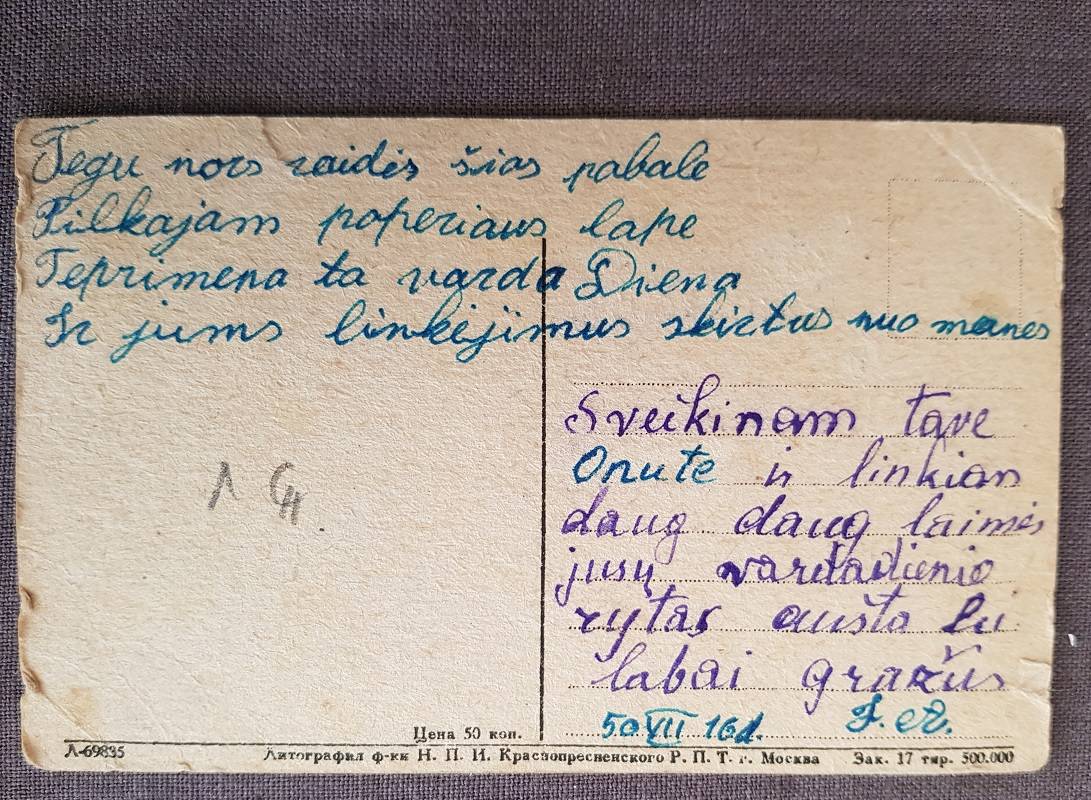 Tegu nors raidės šias pabale
Pilkajam poperiaus lape
Teprimena ta varda Diena
Ir jums linkėjimus skirtus nuo manęs
Sveikinam tave
Onute ir linkian
daug daug laimės
jusų vardadienio
rytas aušta
labai gražus
50 VII 16d.
Цена 50 коп.
Л-69835 Литография ф-ки Н. П. И. Краснопресненского Р. П. Т. г. Москва Зак. 17 тир. 500.000